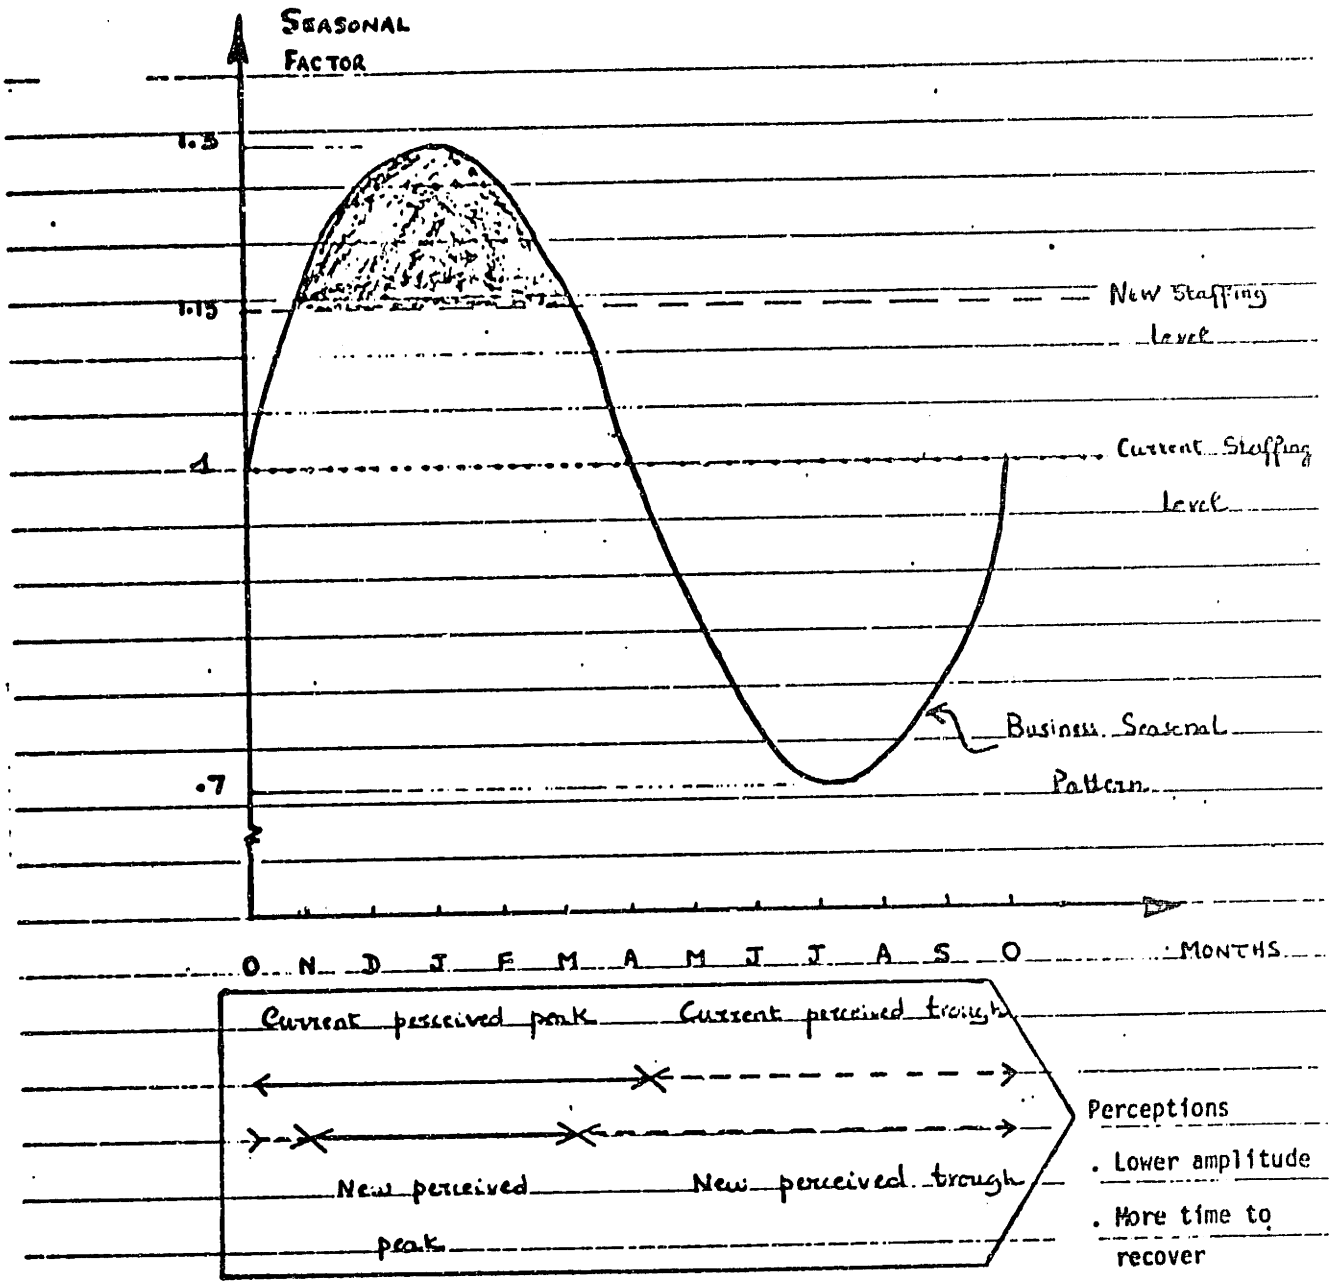 SEASONAL
FACTOR
1.3
1.15
New Staffing
Level
1
Current Staffing
Level
Business Seasonal
Pattern
.7
O N D J F M A M J J A S O
MONTHS
Current perceived peak
Current perceived trough
New perceived
peak
New perceived trough
Perceptions
. Lower amplitude
. More time to
recover